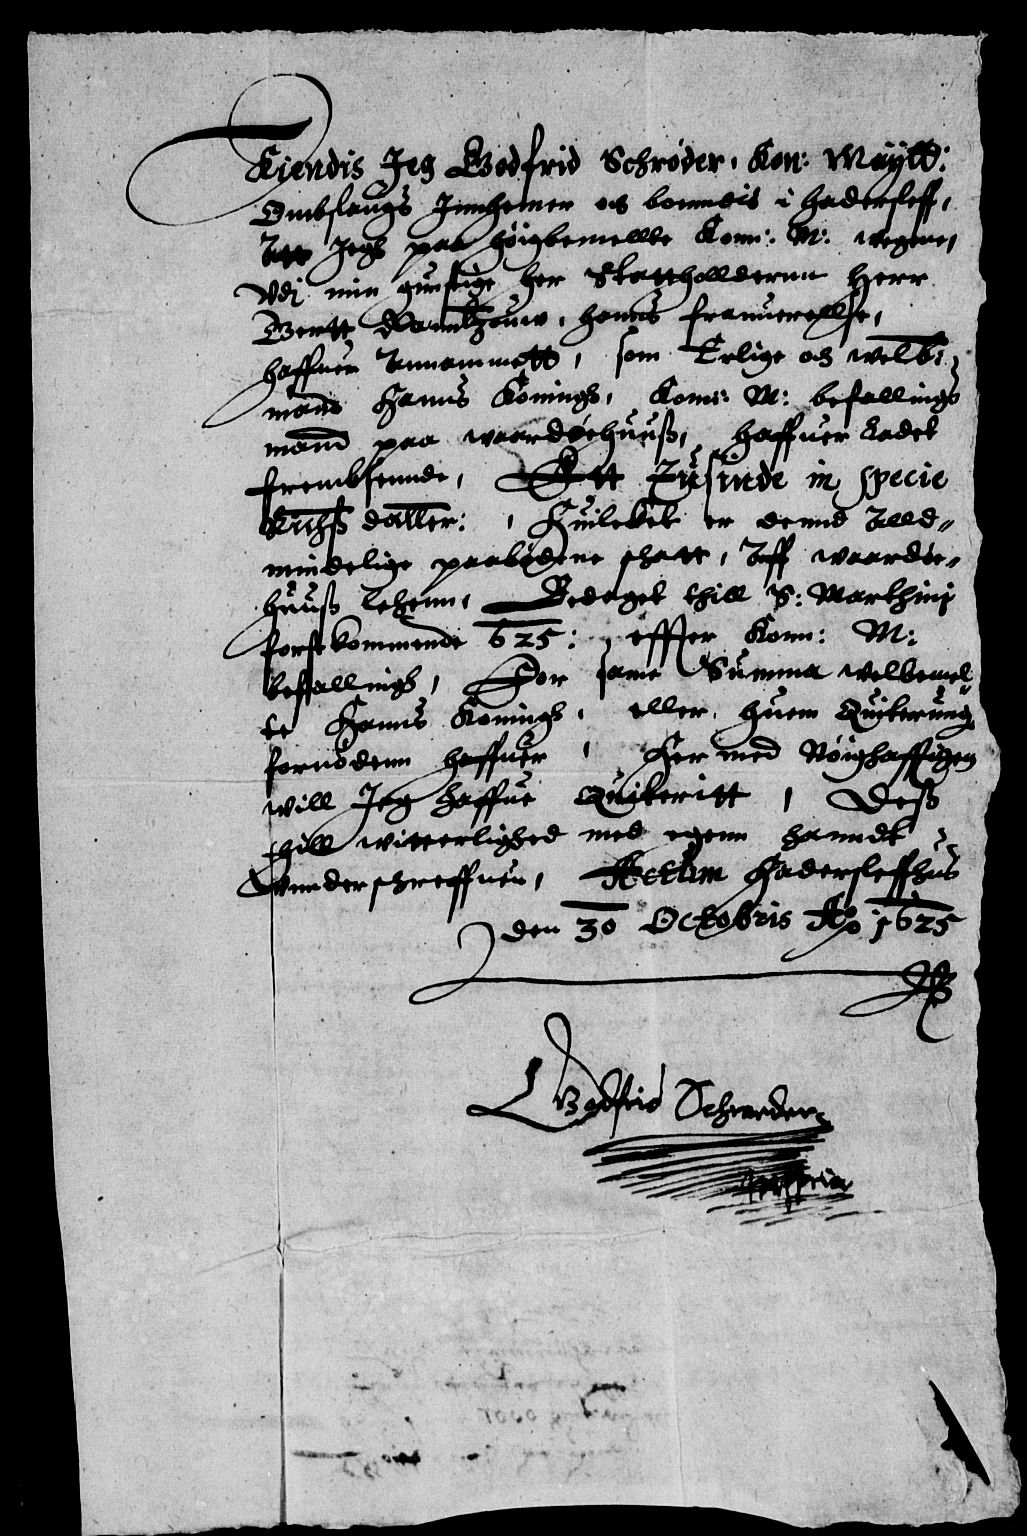 Kiendis Jeg Godfrid Schrøder, Kon: Maÿtt:
Ombslaugs Innhemer och bonndis i Hadersleff,
Att Jegh paa høigbemellte Konn: M: wegene,
Vdj min gunstige her Stattholldernn Herr
Gertt Ranntzouw, hanns franuerellse,
haffuer Annammett, som Erlige och welb:
mand Hanns Könings, Konn: M: befallings
mand paa waardøehuuß, haffuer Ladet
frembsennde, Ett Tusinde in specie
Richß daller: , Huilcket er dennd Alld-
mindelige paabödene schatt, Aff waardøe-
huuß Lehenn, Bedaget thill S: Marthinj
forstkommende 625: effter Konn: M:
befallingh, For same Summa welbemel-
te Hanns Könings, eller huem Quiterung
fornödenn haffuer, Her med Nöighafftigen
will Jeg haffue Quiteritt, Deß
thill witterlighed med egenn hanndt
Vnnderschreffuen, Actum Hadersleffhus
den 30 Octobris Ao 1625
Godfrid Schrøder
mppria